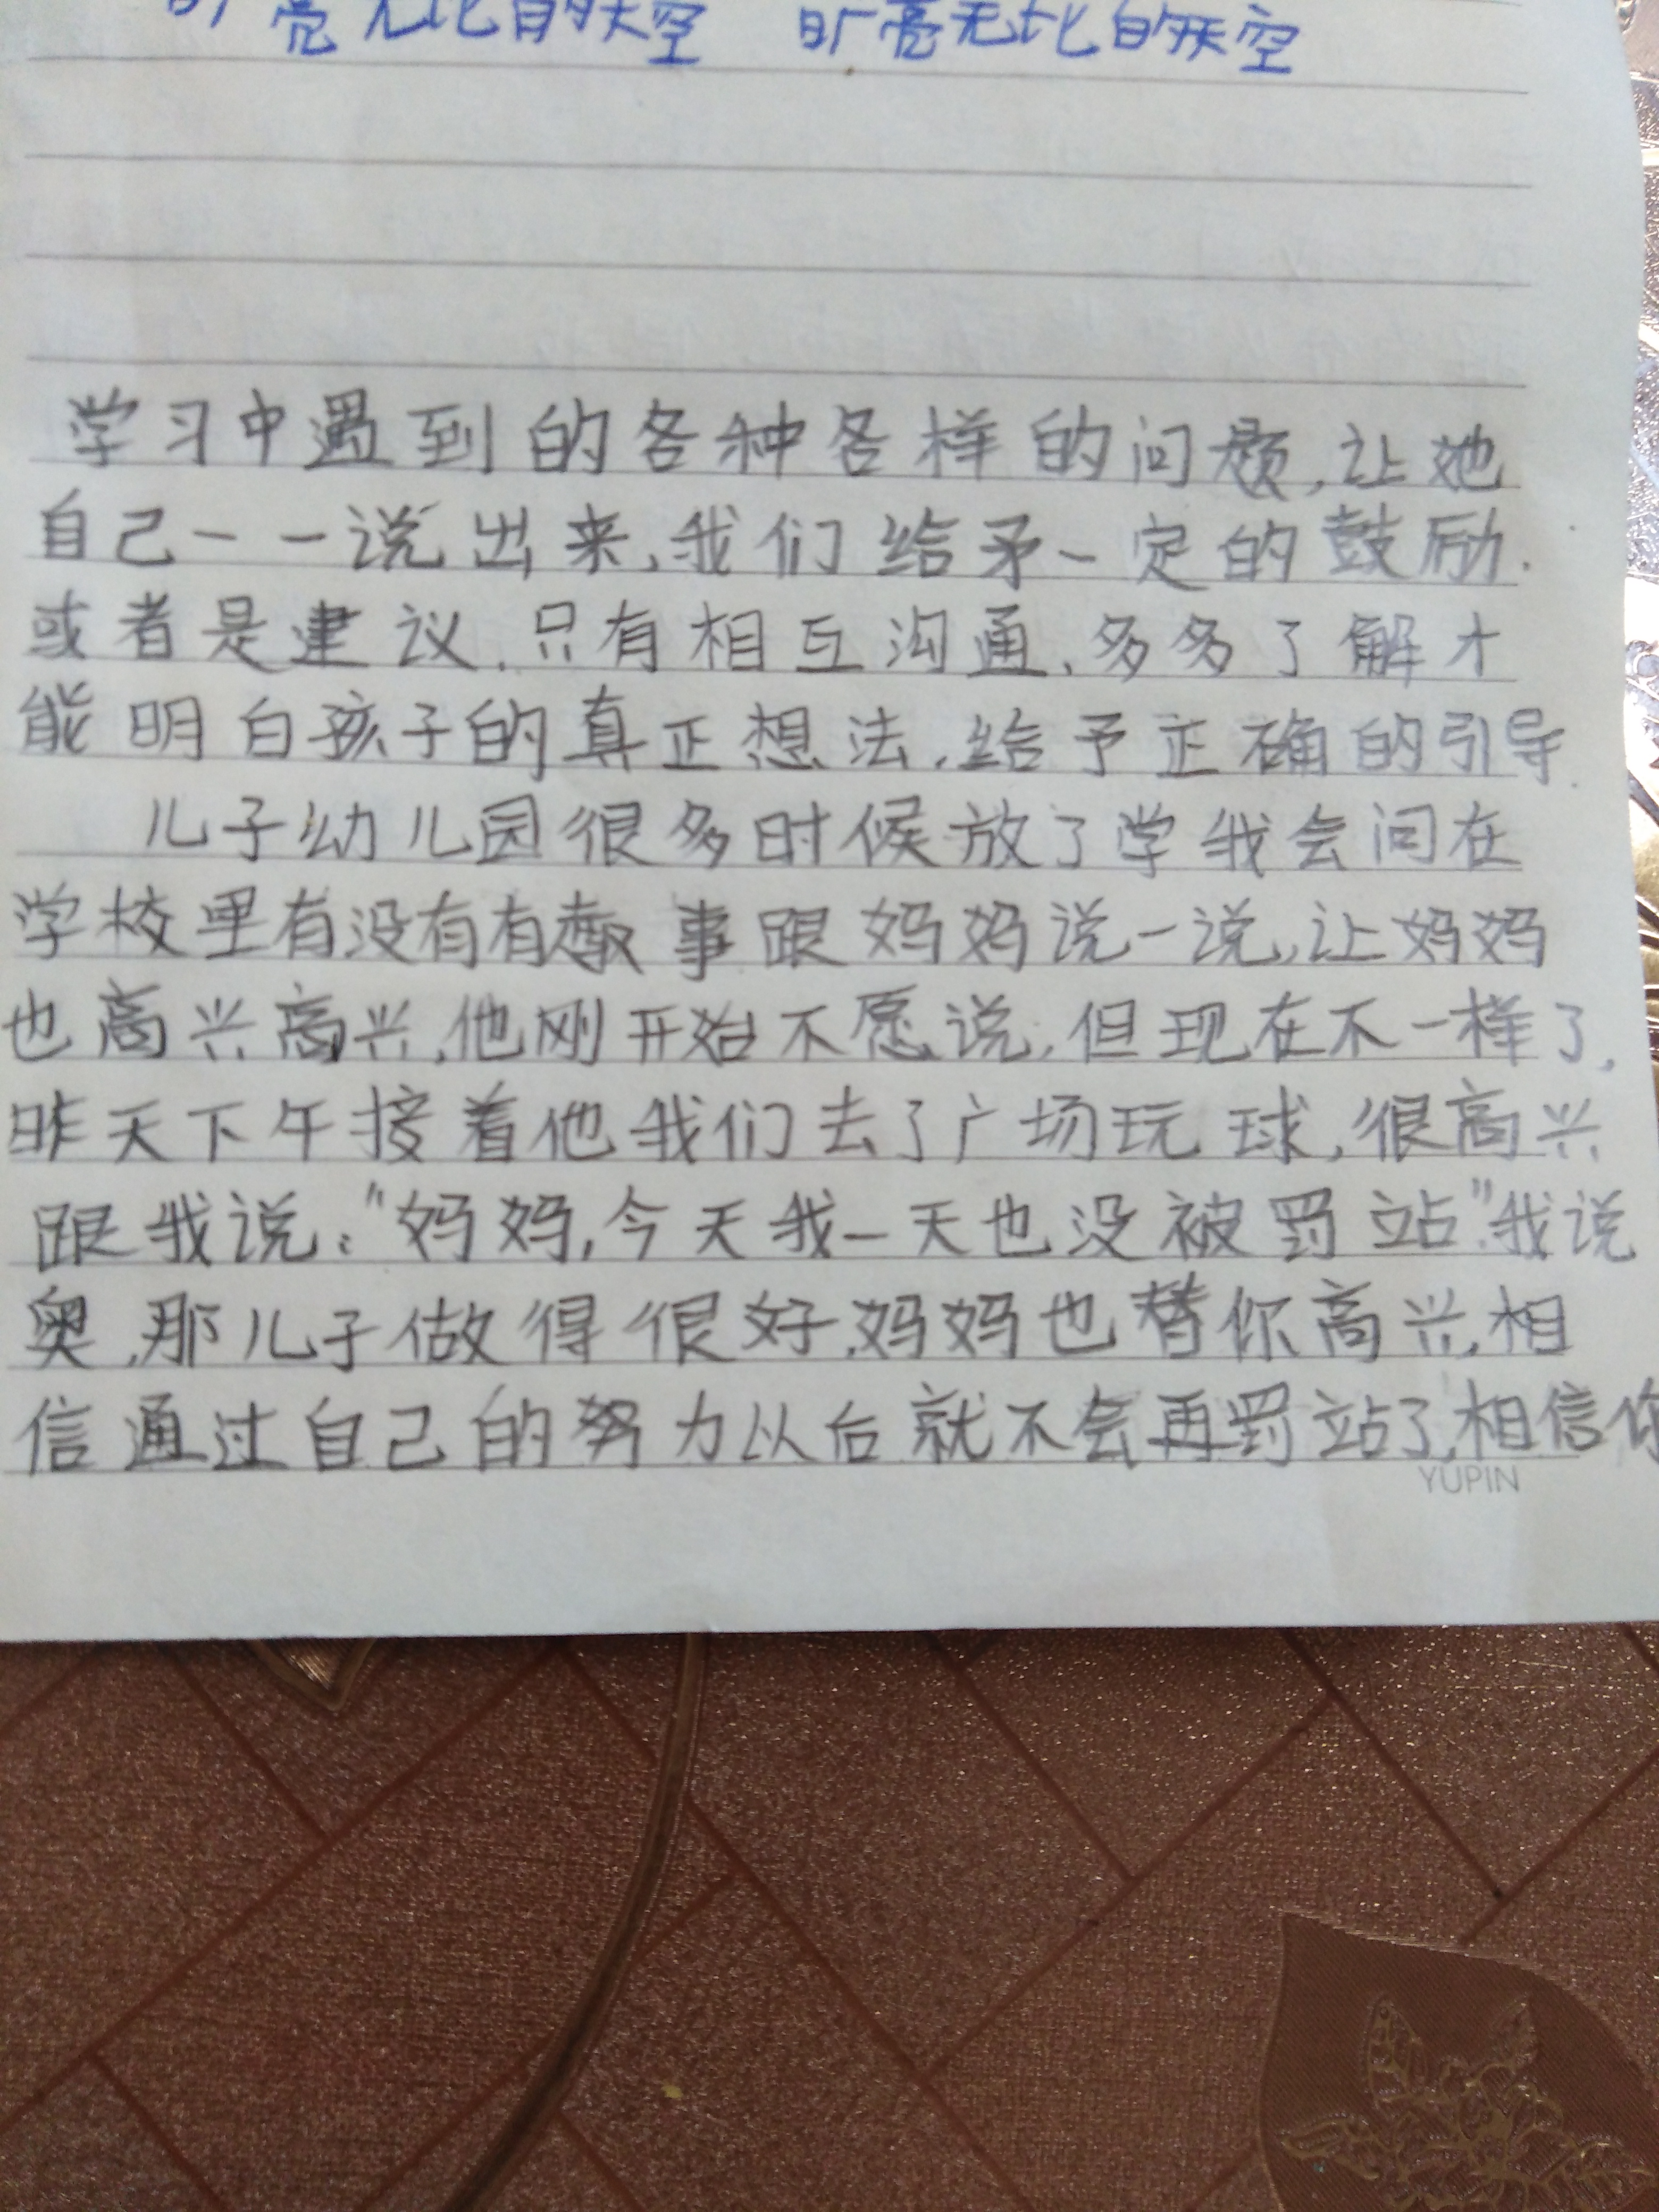 旷亮无比的天空 旷亮无比的天空
学习中遇到的各种各样的问题,让她
自己一一说出来,我们给矛一定的鼓励.
或者是建议.只有相互沟通,多多了解才
能明白孩子的真正想法,给予正确的引导.
儿子幼儿园很多时候放了学我会问在
学校里有没有有趣事跟妈妈说一说,让妈妈
也高兴高兴,他刚开始不愿说,但现在不一样了,
昨天下午接着他我们去了广场玩球,很高兴
跟我说:"妈妈,今天我一天也没被罚站".我说
奥,那儿子做得很好,妈妈也替你高兴,相
信通过自己的努力以后就不会再罚站了,相信你
YUPIN